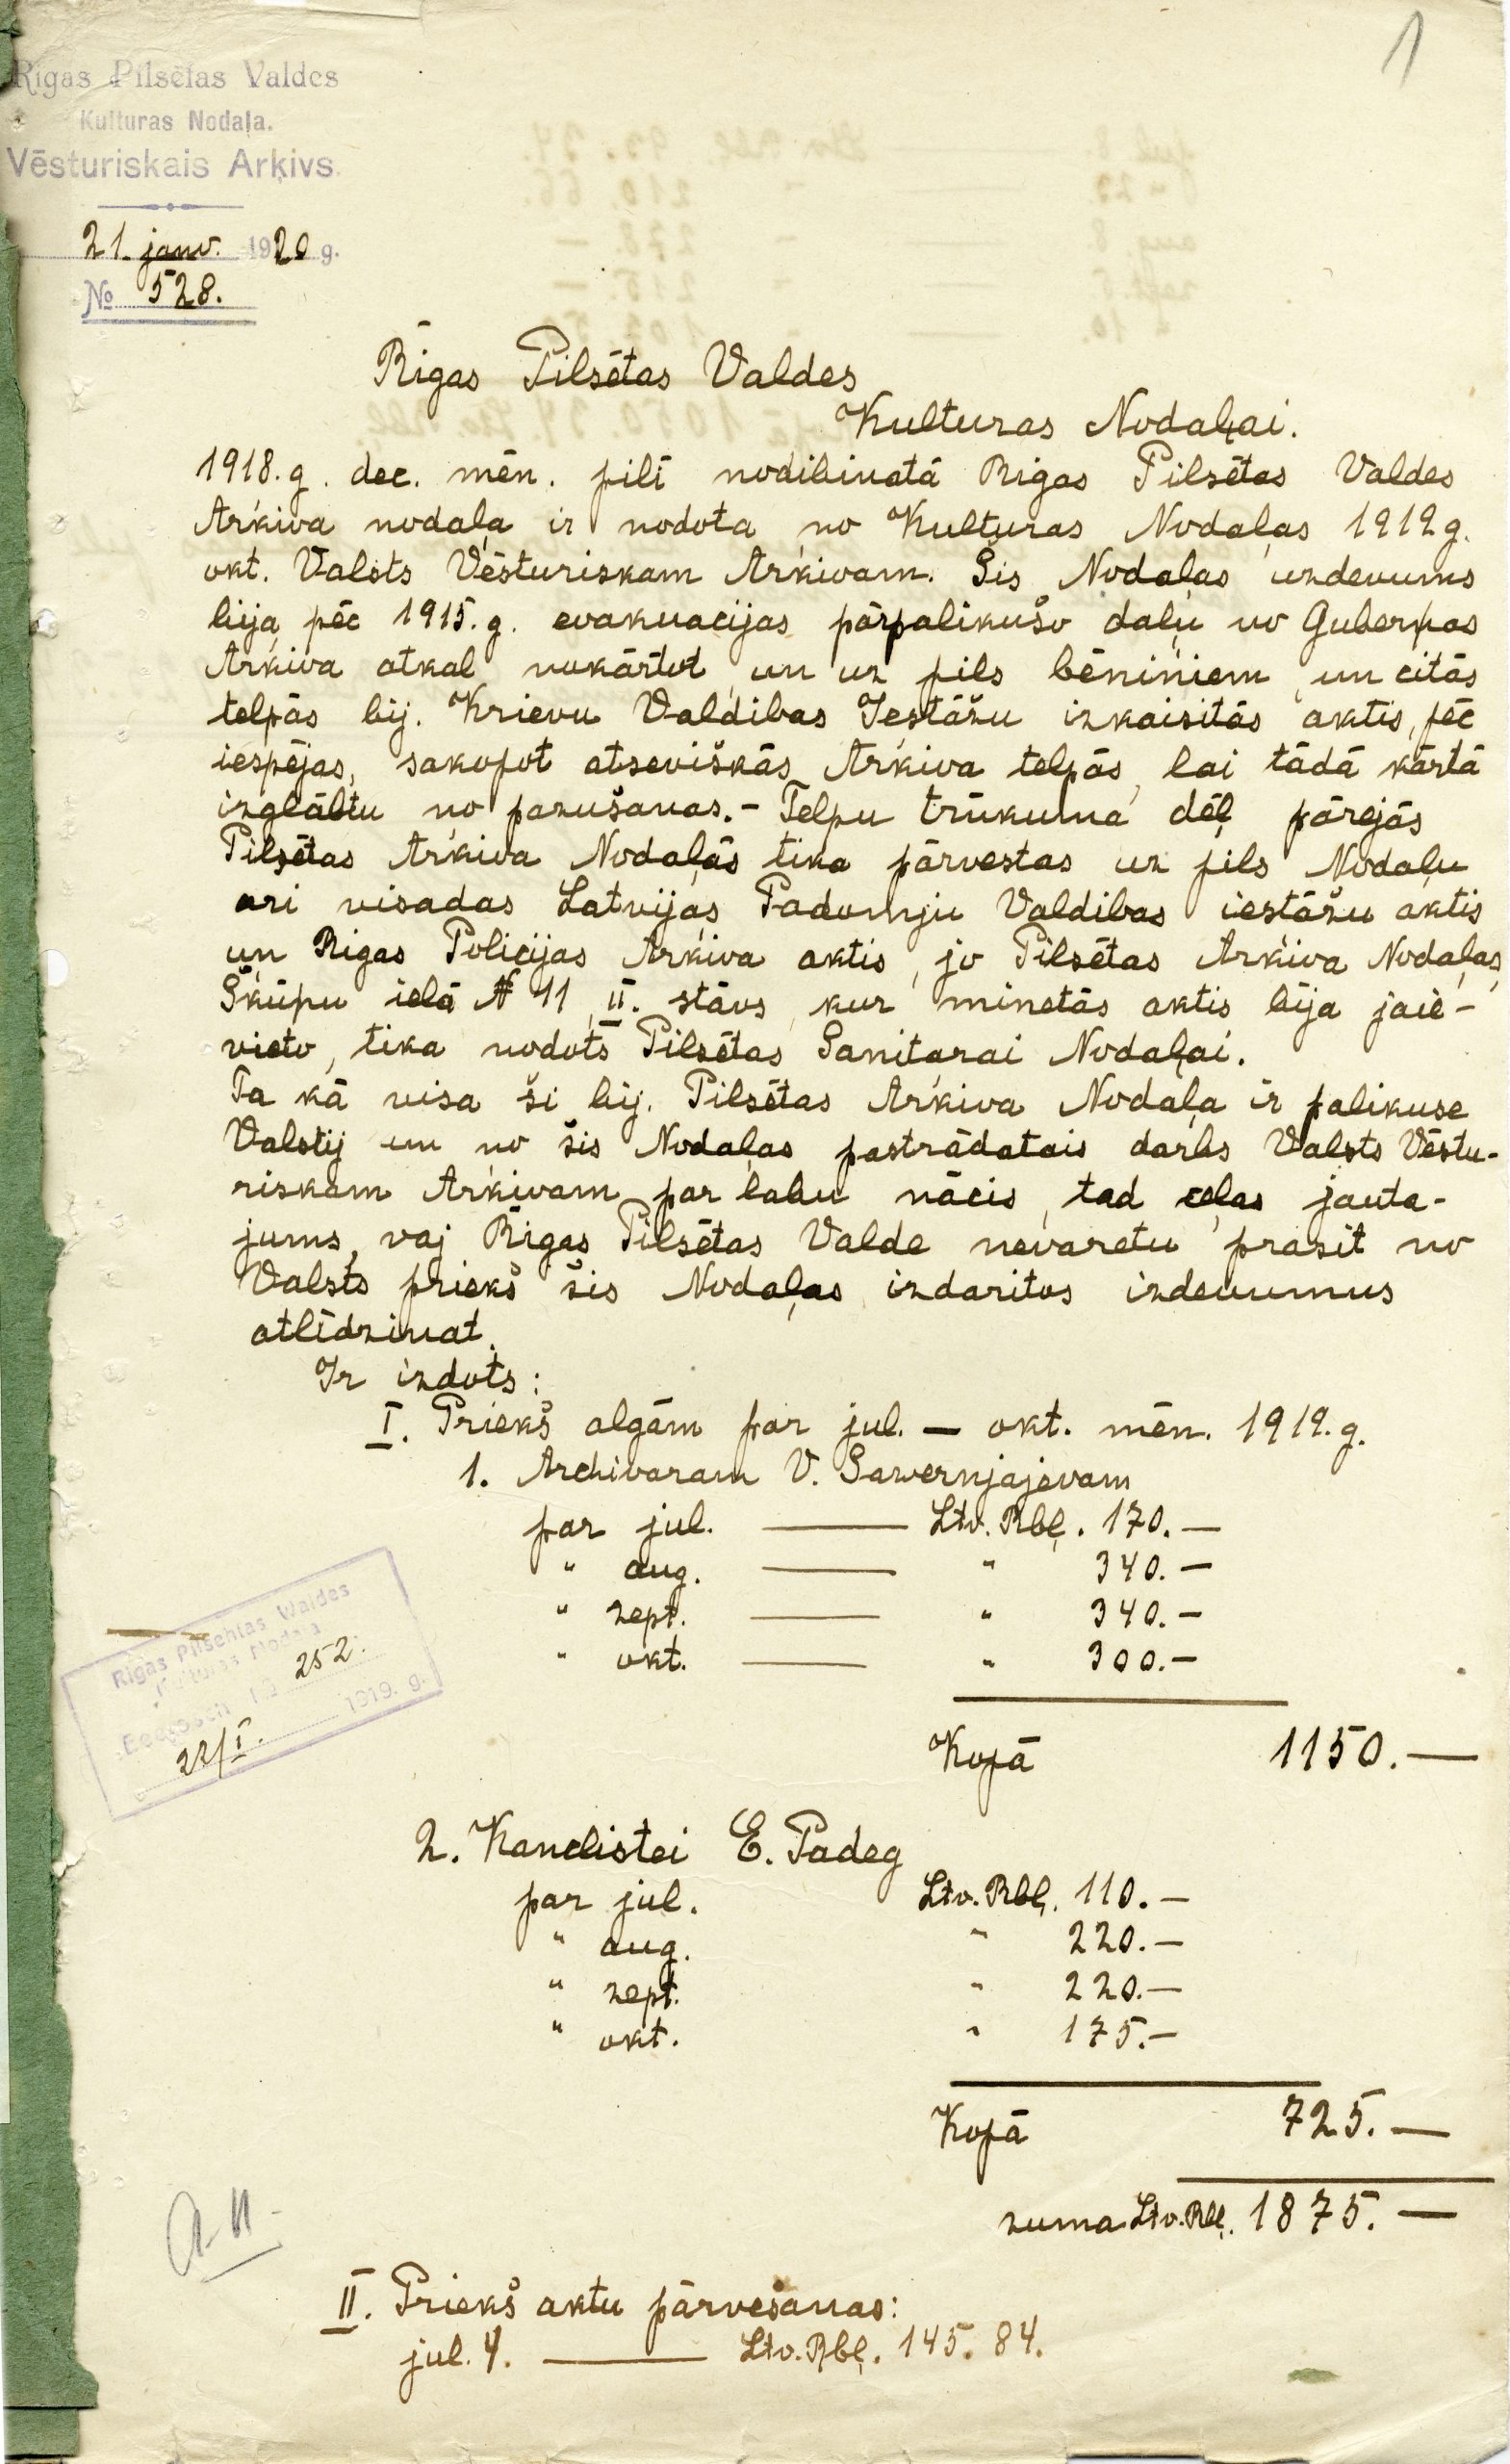 1
Rīgas Pilsētas Valdes
Kulturas Nodaļa.
Vēsturiskais Arķivs.
21. janv. 1920 g.
No 528.
Rīgas Pilsētas Valdes
Kulturas Nodaļai.
1918. g. dec. mēn. pilī nodibinatā Rigas Pilsētas Valdes
Arķiva nodaļa ir nodota no Kulturas Nodaļas 1919 g.
okt. Valsts Vēsturiskam Arķivam. Šis Nodaļas uzdevums
bija pēc 1915. g. evakuacijas pārpalikušo daļu no Guberņas
Arķiva atkal nokārtot un uz pils bēniņiem un citās
telpās bij. Krievu Valdibas Iestāžu izkaisitās aktis, pēc
iespējas, sakopot atseviškās Arķiva telpās, lai tādā kārtā
izglābtu no pazušanas. - Telpu trūkuma dēļ pārejās
Pilsētas Arķiva Nodaļās tika pārvestas uz pils Nodaļu
ari visadas Latvijas Padomju Valdibas iestāžu aktis
un Rigas Policijas Arķiva aktis, jo Pilsētas Arķiva Nodaļas,
Šķūņu ielā № 11, II. stāvs, kur minetās aktis bija jaie-
vieto, tika nodots Pilsētas Sanitarai Nodaļai.
Ta kā visa ši bij. Pilsētas Arķiva Nodaļa ir palikuse
Valstij un no šis Nodaļas pastrādatais darbs Valsts Vēstu-
riskam Arķivam par labu nācis, tad ceļas jauta-
jums, vaj Rīgas Pilsētas Valde nevaretu prasit no
Valsts priekš šis Nodaļas izdaritos izdevumus
atlīdzinat.
Ir izdots:
I. Priekš algām par jul. — okt. mēn. 1919. g.
1. Archivaram V. Sawernjajevam
par jul. — Ltv. Rbļ. 170. —
" aug. — " 340. —
" sept. — " 340. —
" okt. — " 300. —
Rigas Pilsehtas Waldes
Kulturas Nodaļa
252.
1919. g.
22/I.
Kopā 1150. —
2. Kanclistei E. Padeg
par jul. Ltv. Rbļ. 110. —
" aug. " 220. —
" sept. " 220. —
" okt. " 175. —
Kopā 725. —
suma Ltv. Rbļ. 1875. —
II. Priekš aktu pārvešanas:
jul. 4. — Ltv. Rbļ. 145. 84.